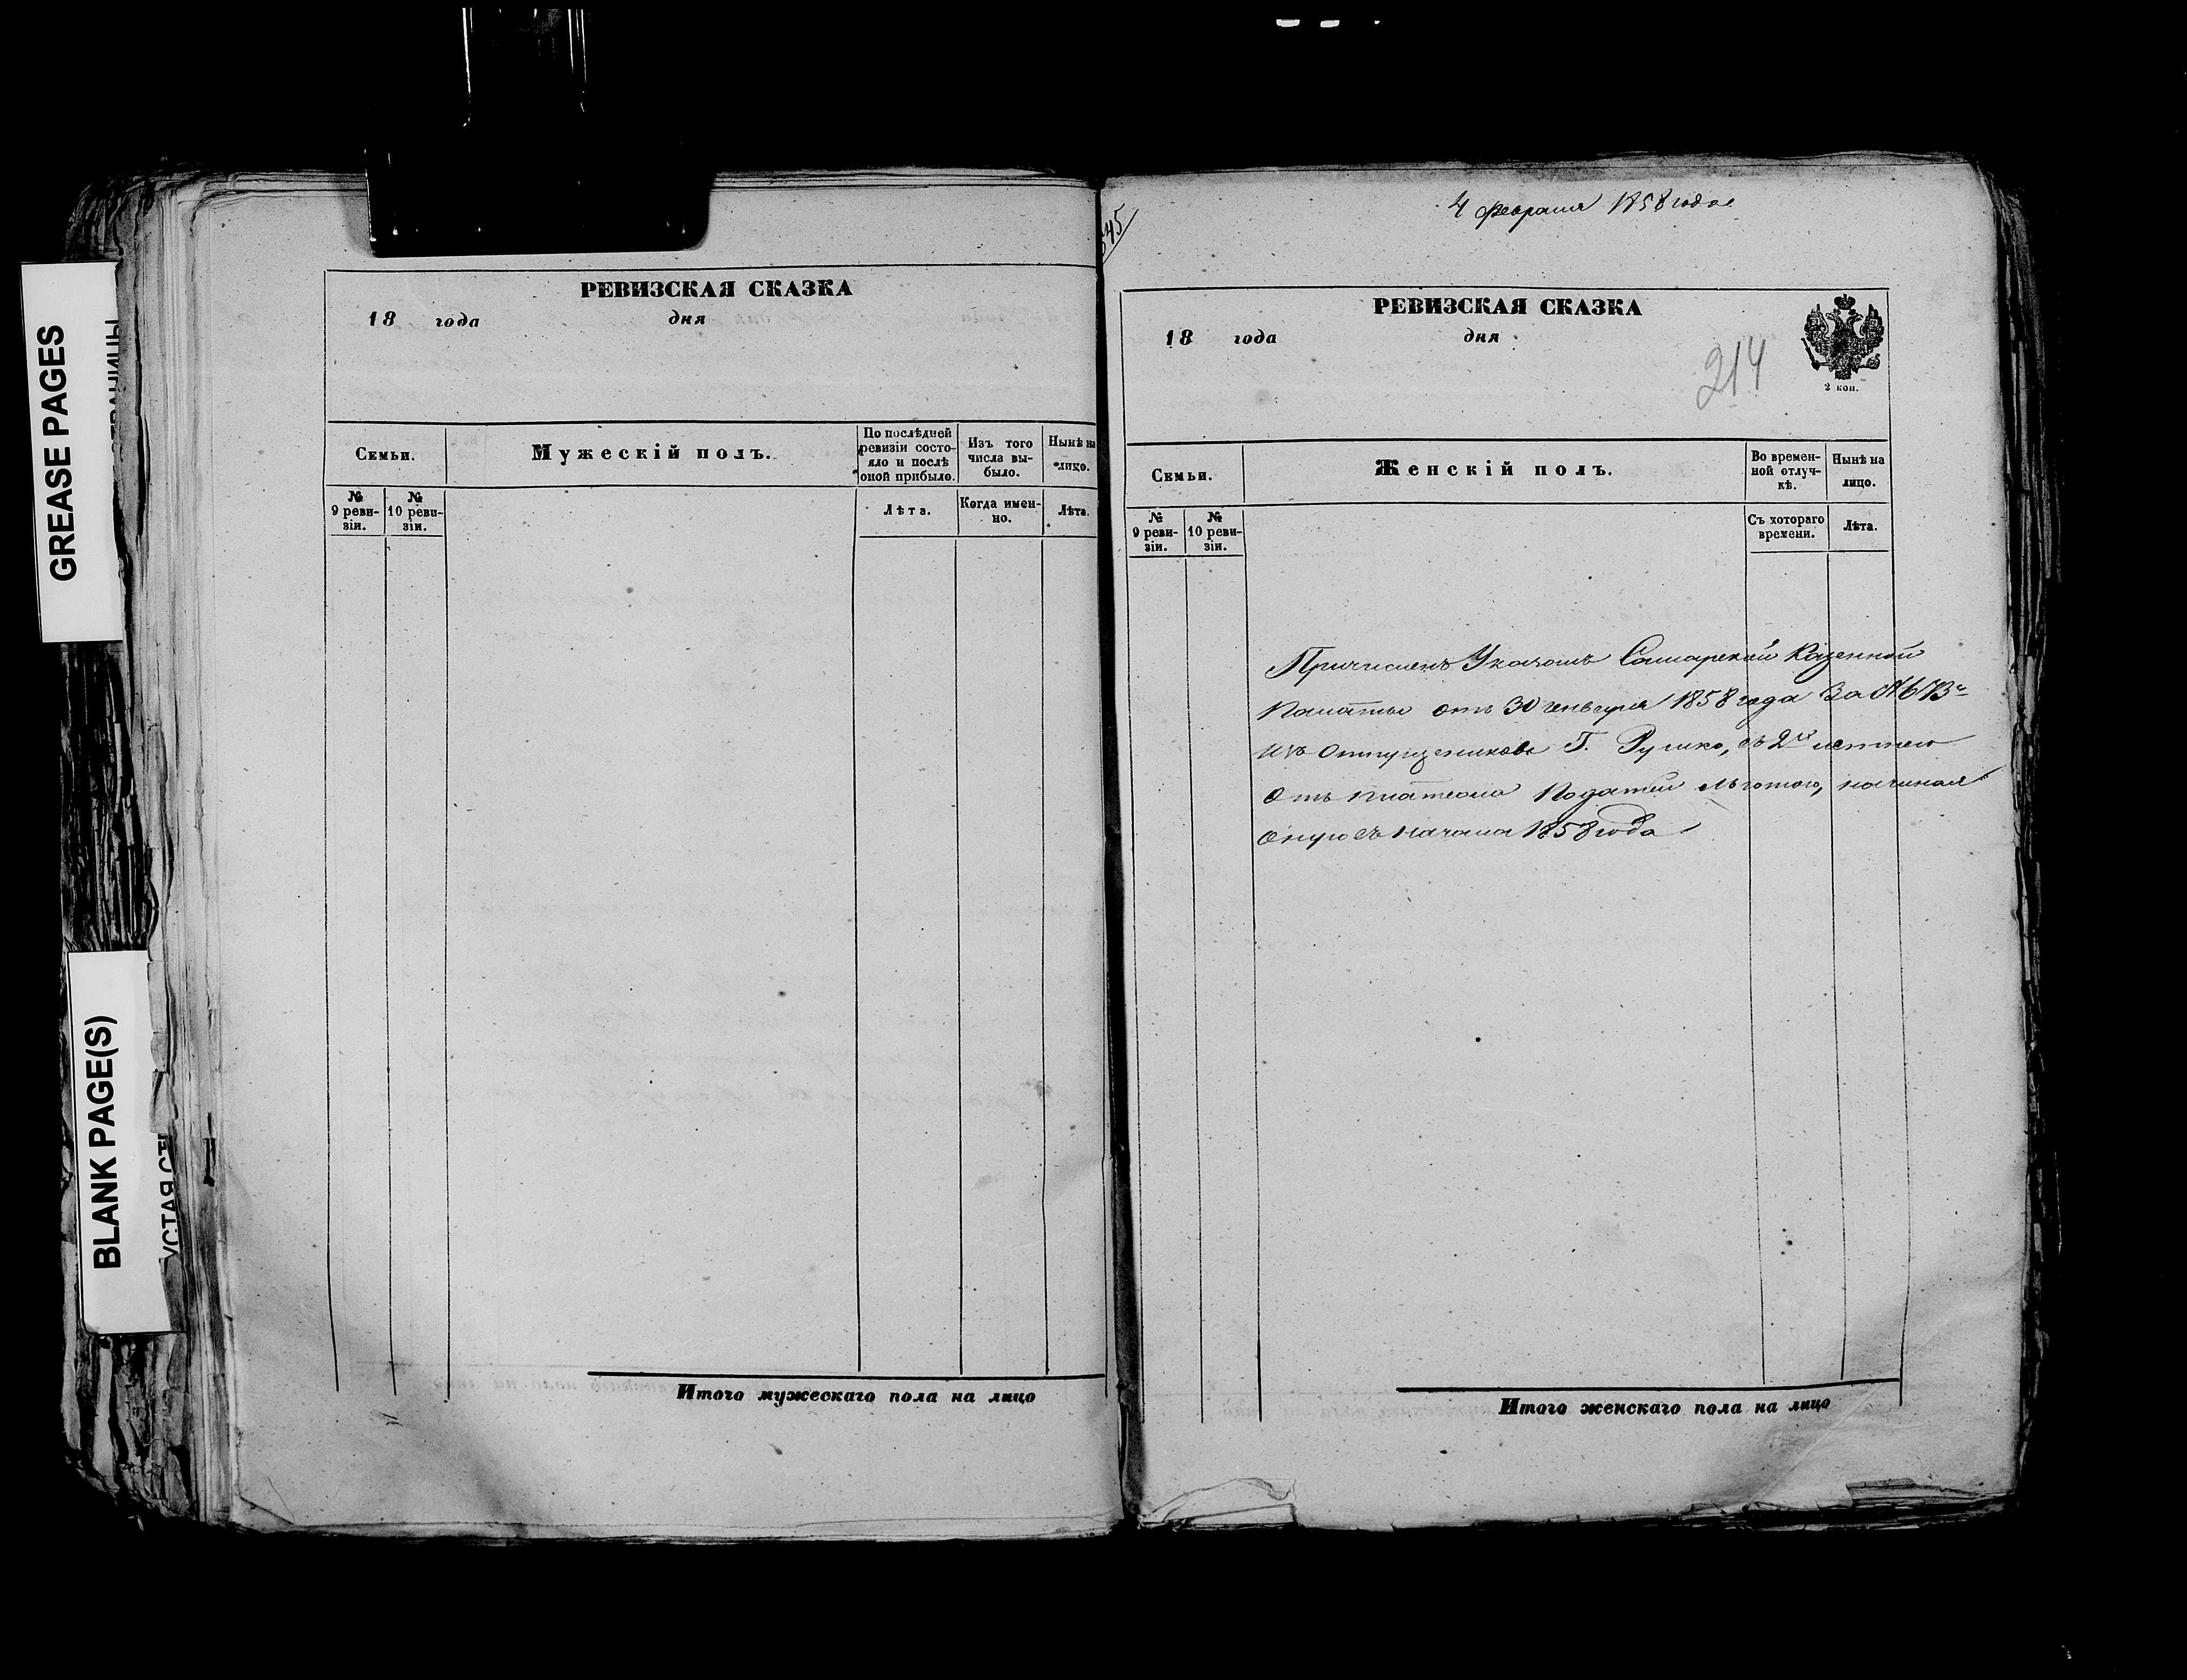 GREASE PAGES
BLANK PAGE(S)
РЕВИЗСКАЯ СКАЗКА
18 года дня
Семьи.
Мужескій полъ.
По послѣдней
ревизіи состо-
яло и послѣ
оной прибыло.
Изъ того
числа вы-
было.
Нынѣ на
лицо.
№
9 реви-
зіи.
№
10 реви-
зіи.
Лѣта.
Когда имен-
но.
Лѣта.
Итого мужескаго пола на лицо
545
4 февраля 1858 года
РЕВИЗСКАЯ СКАЗКА
18 года дня
214
2 коп.
Семьи.
Женскій полъ.
Во времен-
ной отлуч-
кѣ.
Нынѣ на
лицо.
№
9 реви-
зіи.
№
10 реви-
зіи.
Съ котораго
времени.
Лѣта.
Причисленъ Указомъ Самарской Казенной
Палаты отъ 30 генваря 1858 года За №
изъ отпущениковъ Г. съ 2х летнею
Отъ платежа Податей льготою, начиная
оную съ начала 1858 года
Итого женскаго пола на лицо